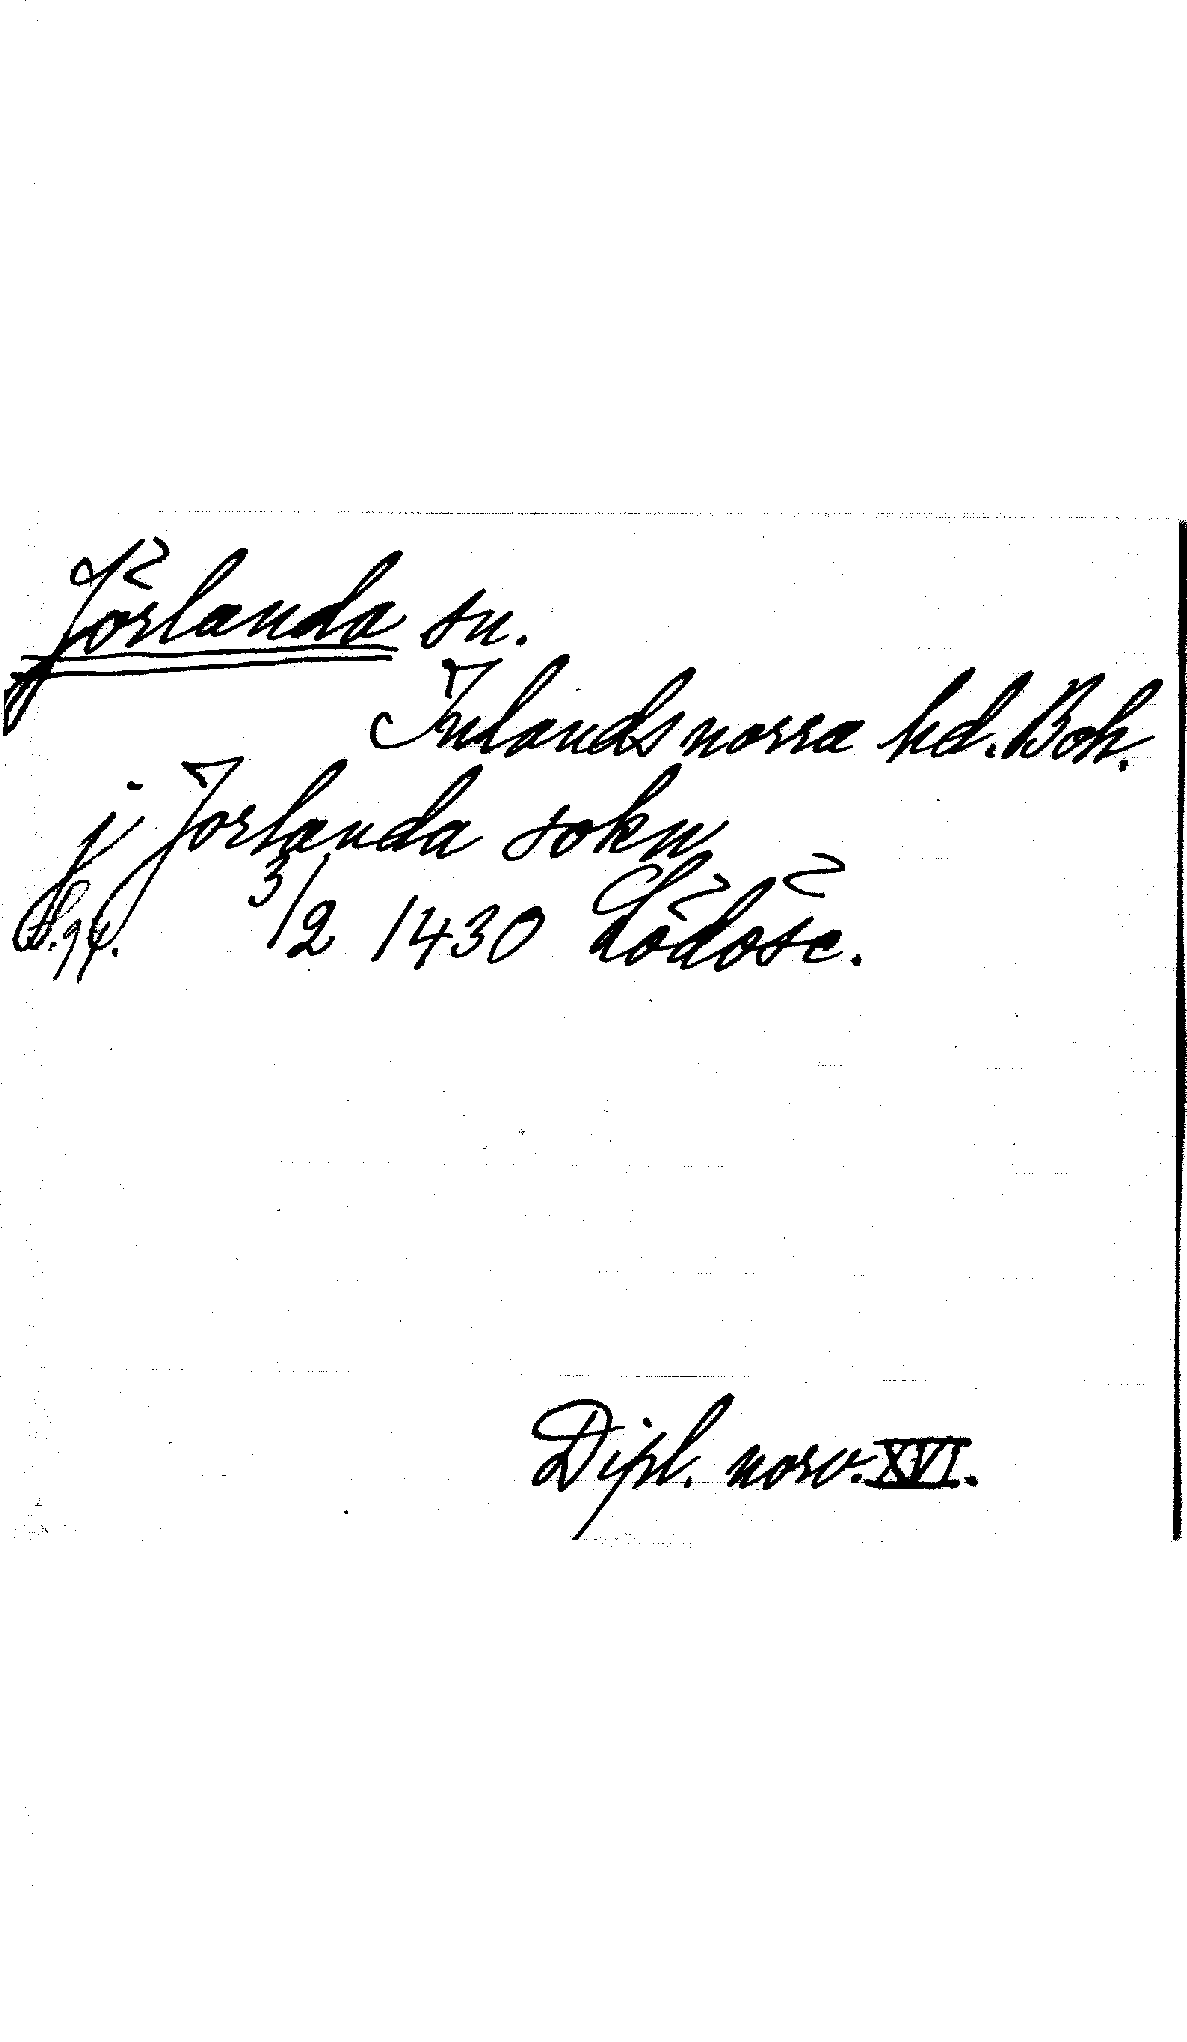 Jörlanda sn.
Inlands norra hd. Boh.
j Jorlanda sokn
3/2 1430 Lödöse.
Dipl. norv. XVI.